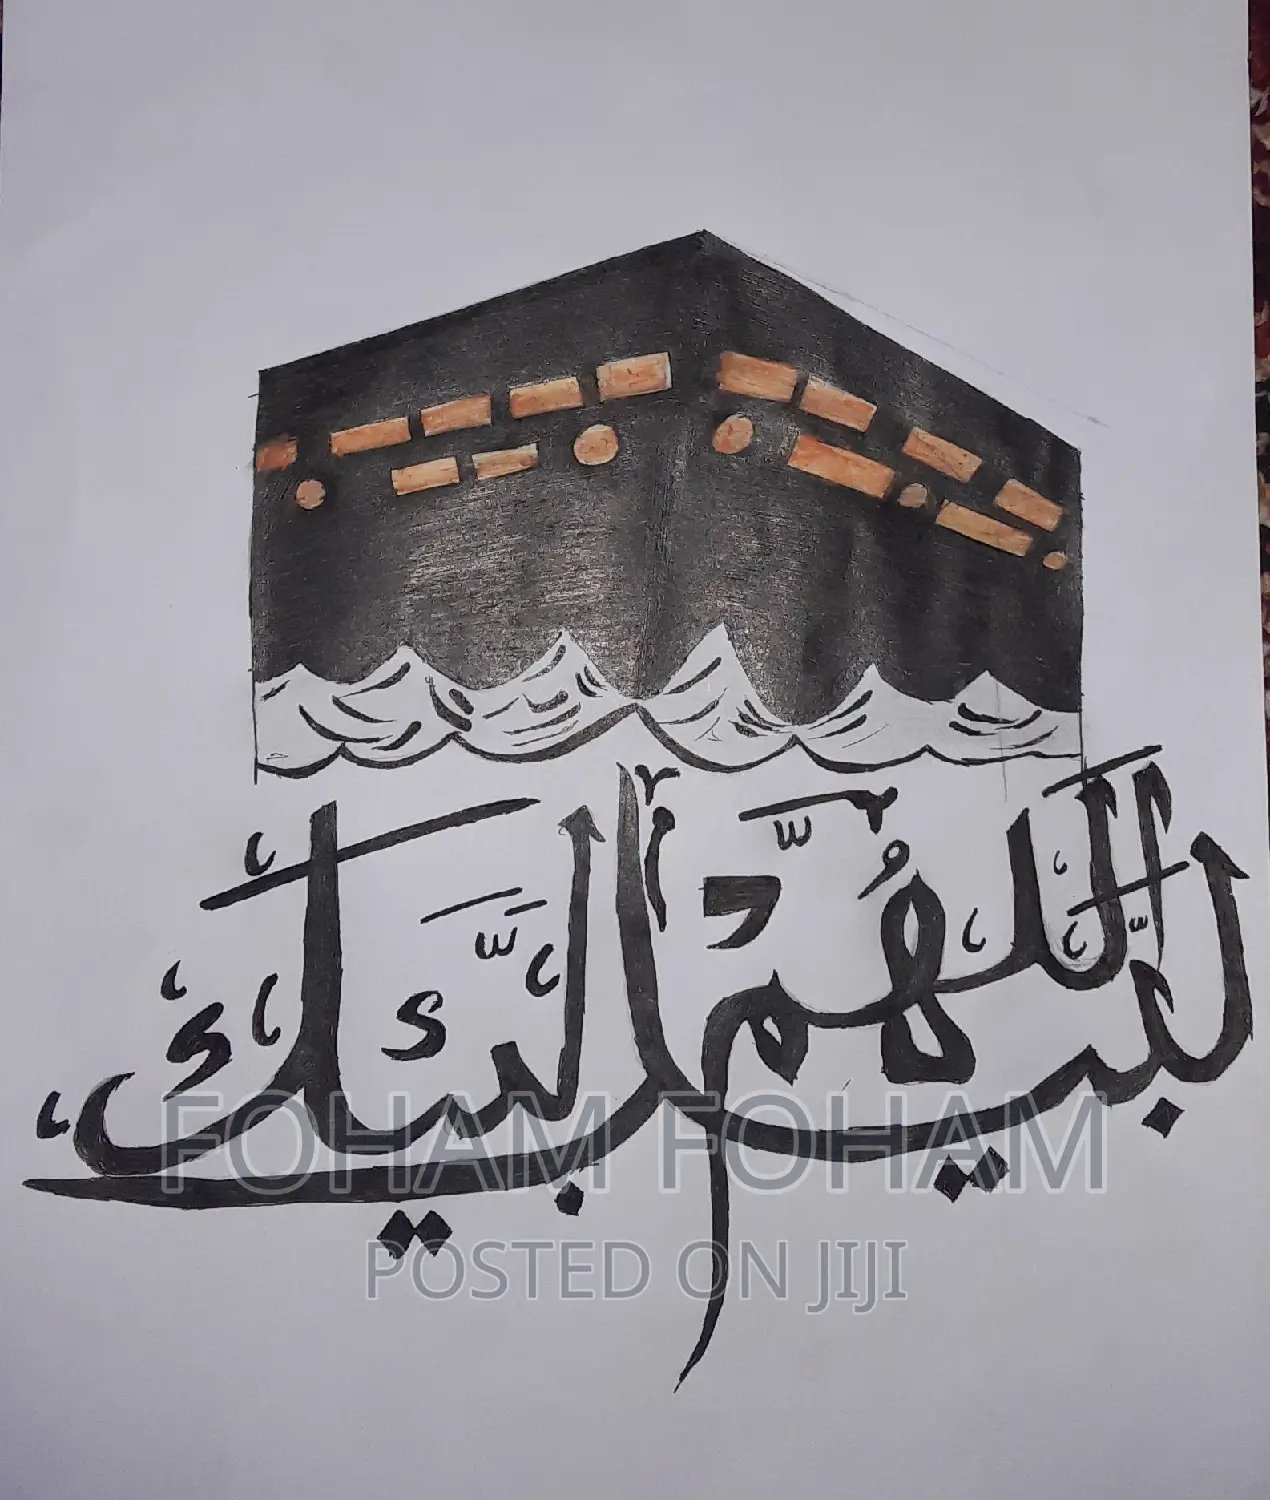 لبيك اللهم لبيك
FOHAM FOHAM
POSTED ON JIJI